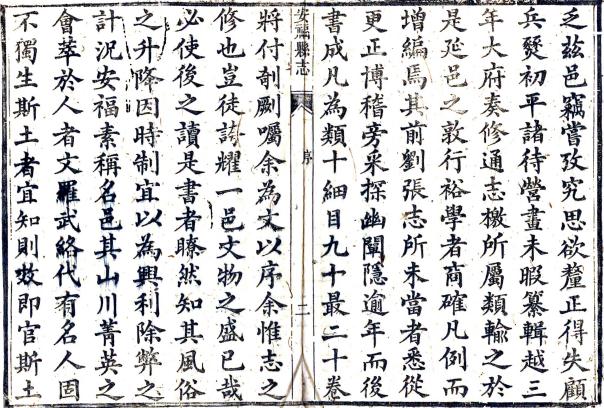 之茲邑竊嘗攷究思欲釐正得失顧
兵燹初平諸待營畫未暇纂輯越三
年大府奏修通志檄所屬類輸之於
是延邑之敦行裕學者商確凡例而
增編焉其前劉張志所未當者悉從
更正博稽旁采探幽闡隱逾年而後
書成凡為類十細目九十最二十卷
安福縣志
序
二
將付剞劂囑余為文以序余惟志之
修也豈徒誇耀一邑文物之盛已哉
必使後之讀是書者瞭然知其風俗
之升降因時制宜以為興利除弊之
計況安福素稱名邑其山川菁英之
會萃於人者文羅武絡代有名人固
不獨生斯土者宜知則效即官斯土